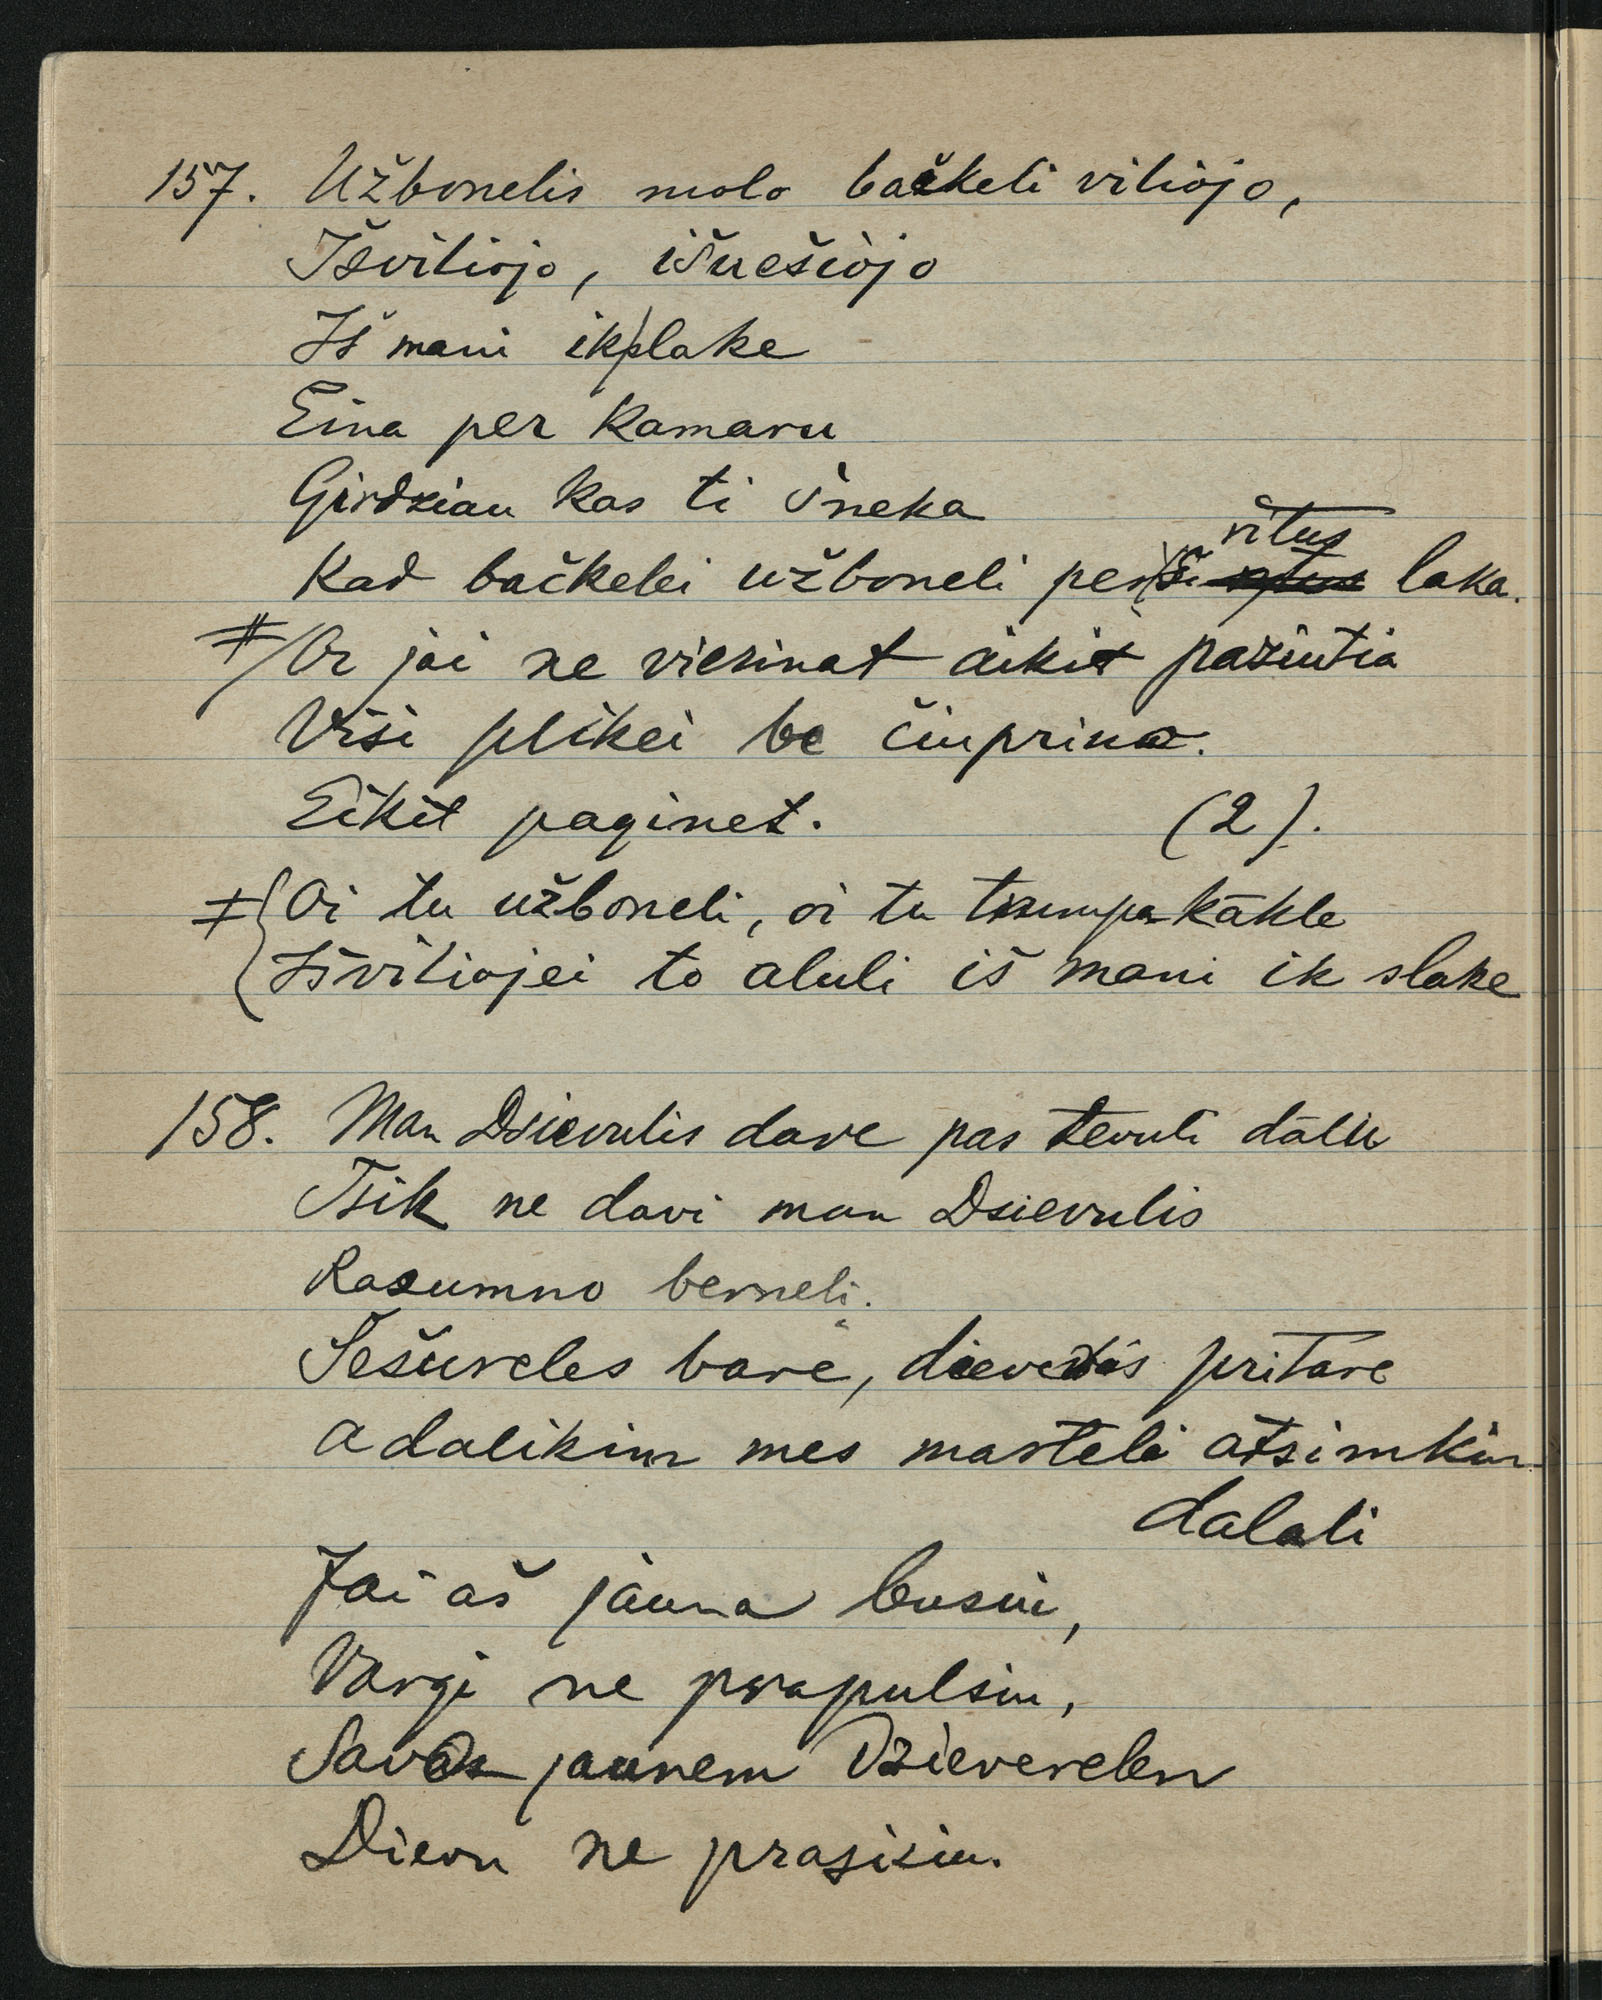 157. Užbonelis molo bačkeli viliojo,
Išviliojo, išnešiojo
Iš mani ik slake
Eina per kamaru
Girdziau kas ti šneka
vitus
Kad bačkelei užboneli per ši laka.
≠/Or jai ne viezinat aikit pazintia
Visi plikei be čiuprina.
Eikit paginet. (2).
≠{Oi tu užboneli, oi tu trumpakākle
Išviliojei to aluli iš mani ik slake
158. Man Dzievulis dave pas tevuli dāliu
Tsik ne davi man Dzievulis
Razumno berneli.
Šešureles barė, dieveris pritare
adalikim mes marteli atsimkim
dalali
Jai aš jauna busiu,
Vargi ne prapulsiu,
Savo jaunem Dzieverelem
Dievu ne prasisiu.